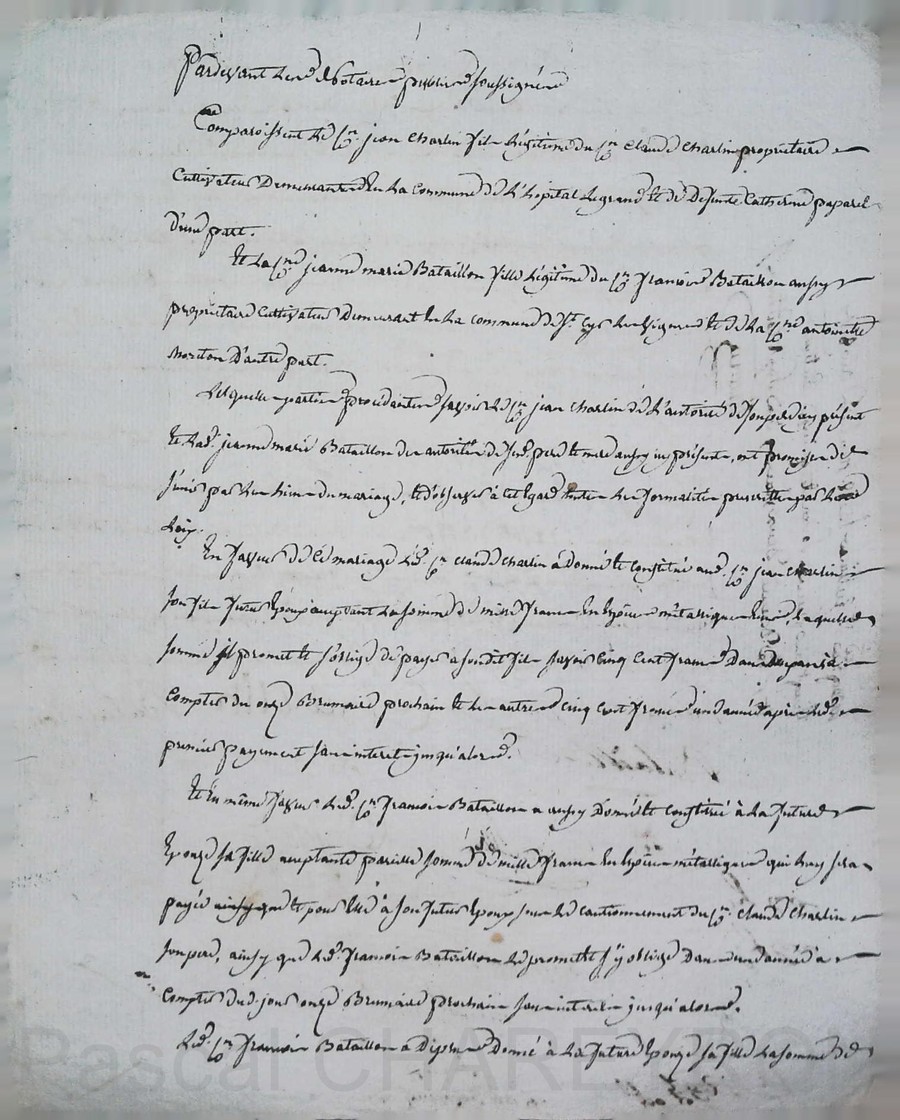 Pardevant Le Notaire public soussigné
Comparoissent Le Cen. jean Charlin fils Légitime du Cen Claude Charlin propriétaire
Cultivateur Demeurant En La Commune de L'hopital Legrand et de Defunte Catherine paparel
D'une part.
Et La Cne jeanne marie Bataillon fille Légitime du Cen françois Bataillon aussy
propriétaire Cultivateur Demeurant En La commune de St. Cyr Les vignes et de La Cne antoinette
Moriton D'autre part.
Lesquelles parties procédantes savoir Le Cen jean Charlin de L'autorité de son pere icy présent
Et Lad. jeanne marie Bataillon des autorités de ses pere et mere aussy icy présents, ont promis de
s'unir par Les Liens du mariage, et d'observer à cet Egard toutes Les formalités prescrittes par Les
Loix.
En faveur de Ce mariage Led. Cen Claude Charlin a donné et Constitué aud. Cen jean Charlin
son fils futur Epoux acceptant La somme de mille francs En Espèces métalliques, Laquelle
somme il promet et s'oblige de payer a son dit fils savoir Cinq Cent francs Dans un an à
Compter du onze Brumaire prochain et Les autres Cinq Cent francs une année après Led.
premier payement sans interets jusqu'alors.
Et En même faveur Led. Cen françois Bataillon a aussy Donné et Constitué à La future
Epouze sa fille acceptante pareille somme de mille francs En Espèces métalliques qui Luy sera
payée et pour Elle à son futur Epoux sous Le cautionnement du Cen. Claude Charlin
son pere, ainsy que Led. françois Bataillon Le promet et s'y oblige Dans une année à
Compter dud. jour onze Brumaire prochain sans interets jusqu'alors.
Led. Cen françois Bataillon a Donné à La future Epouze sa fille La somme de
Pascal CHAREYRO